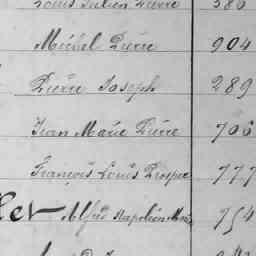 Louis Julien Pierre 386
Michel Pierre 904
Pierre Joseph 289
Jean Marie Pierre 706
François Louis Prosper 777
Alfred Napoléon 754